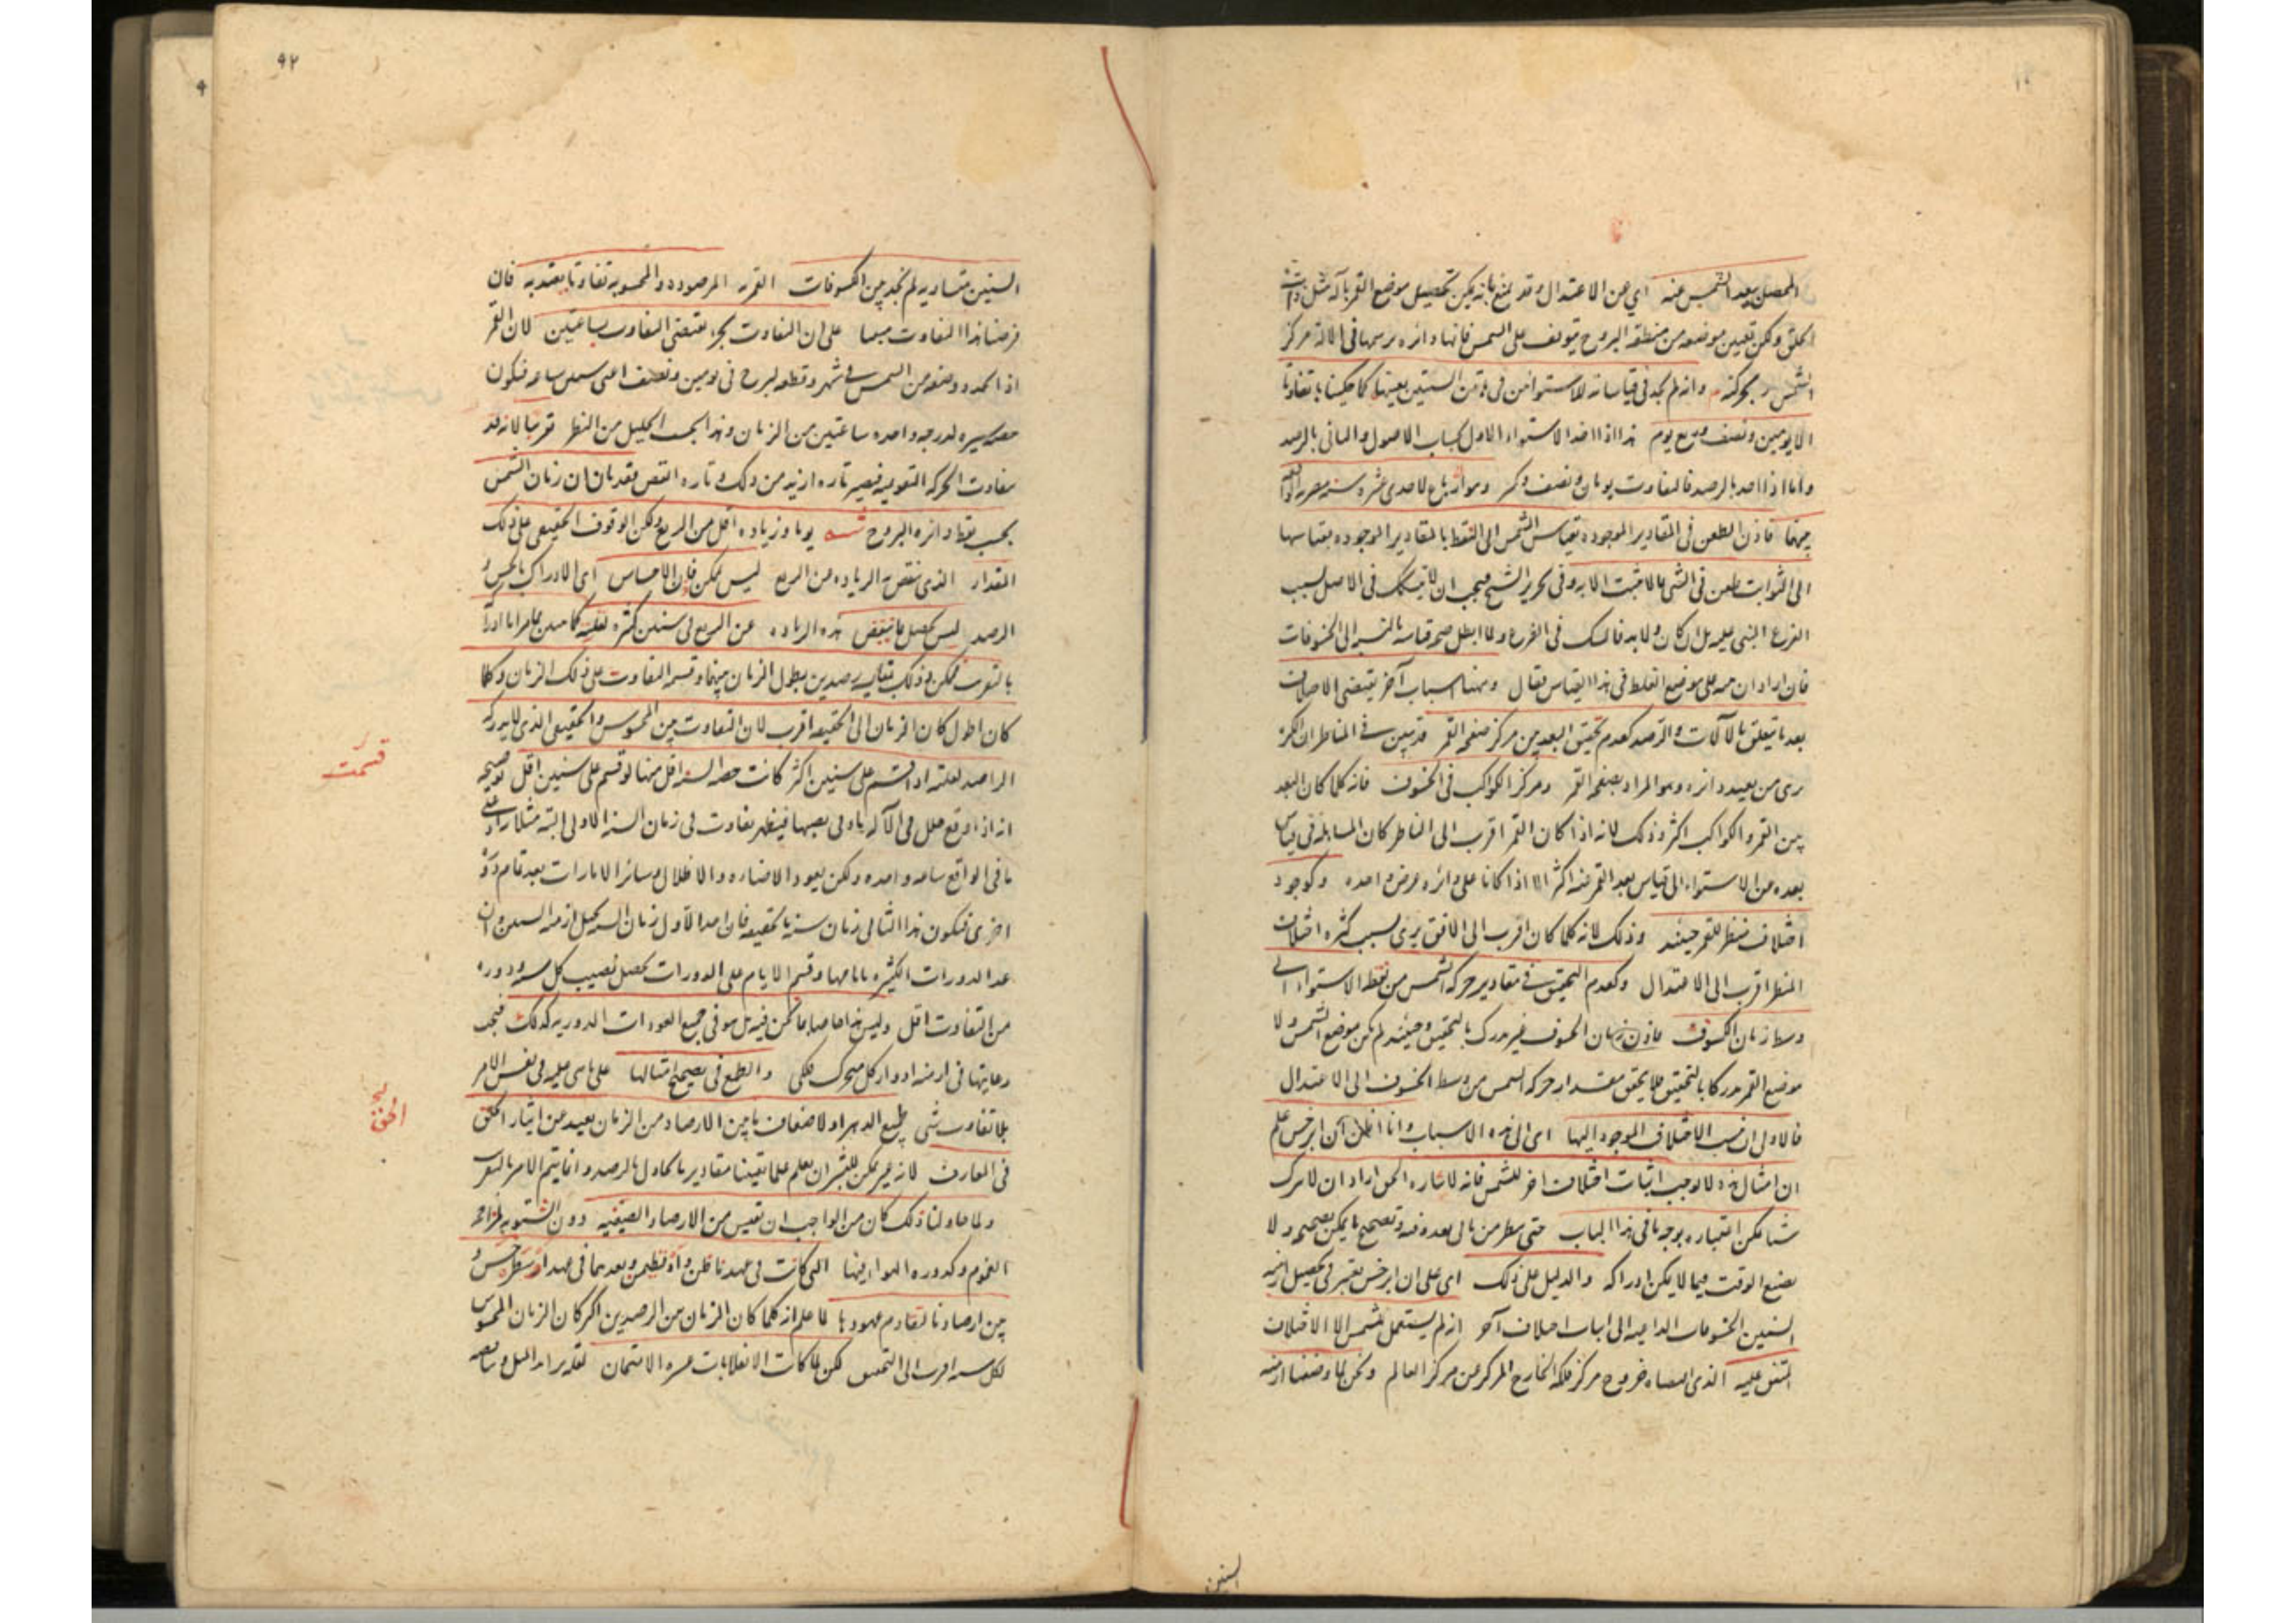 المحصل ببعد الشمس عنه اي عن الاعتدال وقد يمنع بانه يمكن تحصيل موضع القمر بآلة مثل ذات
الحلق ولكن تعيين موضعه من منطقة البروج يتوقف على الشمس فانها دائرة يرسمها في الآلة مركز
الشمس بحركته وانه لم يجد في قياساته للاستوائين في مدة من السنين بعينها كما حكينا تفاوتا
الا يومين ونصف وربع يوم هذا اذا اخذ الاستواء الاول بحساب الاصول والثاني بالرصد
واما اذا اخذ بالرصد فالتفاوت يومان ونصف
فاذن الطعن في المقادير الموجودة بقياس الشمس الى النقط بالمقادير الموجودة بقياسها
الى الثوابت طعن في الشي بما لا يثبت الا به وفي تحرير الشيخ فيجب ان لا يتشكك في الاصل بسبب
الفرع المبني عليه بل ان كان ولا بد فالشك في الفرع ولما ابطل صحة قياسه بالنسبة الى الخسوفات
فان اراد ان على موضع الغلط في هذا القياس فقال وههنا اسباب آخر يقتضي الاختلاف
بعد ما يتعلق بالآلات والرصد كعدم تحقيق البعد بين مركز صفحة القمر قد تبين في المناظر ان الكرة
يرى من بعيد دائرة وهو المراد بصفحة القمر ومركز الكواكب في الخسوف فانه كلما كان البعد
بين القمر والكواكب اكثر وذلك لانه اذا كان القمر اقرب الى الناظر كان المساهلة في قياس
بعده من الاستواء الى قياس بعد القمر منه اكثر الا اذا كانا على دائرة عرض واحدة وكوجود
اختلاف منظر للقمر حينئذ وذلك لانه كلما كان اقرب الى الافق يرى بسبب كثرة اختلاف
المنظر اقرب الى الاعتدال وكعدم التحقيق في مقادير حركة الشمس من نقط الاستواء الى
وسط زمان الكسوف فاذن زمان الخسوف غير مدرك بالتحقيق وحينئذ لم يكن موضع الشمس ولا
موضع القمر مدركا بالتحقيق فلا يتحقق مقدار حركة الشمس من وسط الخسوف الى الاعتدال
فالاولى ان ينسب الاختلاف الموجود اليها اي الى هذه الاسباب وانا اظن ان ابرخس علم
ان امثال هذه لا توجب اثبات اختلاف اخر للشمس فانه لايثاره الحق اراد ان لا يترك
شيئا يمكن اعتباره بوجه ما في هذا الباب حتى ينظر من ياتي بعده فيه وتصحيح ما يمكن تصحيحه ولا
يضيع الوقت فيما لا يمكن ادراكه والدليل على ذلك اي على ان ابرخس يعتبر في تحصيل ازمنة
السنين الخسوفات الداعية الى اثبات اختلاف آخر انه لم يستعمل للشمس الا الاختلاف
المتفق عليه الذي اقتضاه خروج مركز فلكه الخارج المركز عن مركز العالم ونحن لما وضعنا ازمنة
السنين
٩٢
السنين متساوية لم نجد بين الكسوفات القمرية المرصودة والمحسوبة تفاوتا يعتد به فان
فرضنا هذا التفاوت مبينا على ان التفاوت بجزء يقتضي التفاوت بساعتين لان القمر
اذا اخذ دورته من الشمس في شهر وقطعه لبرج في يومين ونصف اعني ستين ساعة فيكون
حصة سيره لدرجة واحدة ساعتين من الزمان وهذا بحسب الجليل من النظر تقريبا لانه قد
يتفاوت الحركة التقويمية فيصير تارة ازيد من ذلك وتارة انقص فقد بان ان زمان الشمس
بحسب نقط دائرة البروج شسه يوما وزيادة اقل من الربع ولكن الوقوف الحقيقي على ذلك
المقدار الذي ينقص به الزيادة من الربع ليس يمكن فان الاحساس اي الادراك بالحس و
الرصد ليس يحصل ما ينقص هذه الزيادة عن الربع في سنين كثيرة لقلته
بالتقريب فيمكن ذلك بقياس رصدين يطول الزمان بينهما وقسمة التفاوت على ذلك الزمان وكلما
كان اطول كان الزمان الى الحقيقة اقرب لان التفاوت بين المحسوس والحقيقي الذي لا يدركه
الراصد لقلته اذا قسم على سنين اكثر كانت حصة السنة اقل منها لو قسم على سنين اقل توضيحه
انه اذا وقع خلل في الآلة او في نصبها فيظهر تفاوت في زمان السنة الاولى البتة مثلا زاد على
ما في الواقع ساعة واحدة ولكن يعود الاضاءة والاظلال وسائر الامارات بعد تمام دورة
اخرى فيكون هذا الثاني زمان سنة بالحقيقة فان
عد الدورات الكثيرة بايامها وقسم الايام على الدورات يحصل نصيب كل دورة
من التفاوت اقل وليس هذا خاصا بما نحن فيه بل هو في جميع العودات الدورية كذلك فيجب
رعايتها في ازمنة ادوار كل متحرك فلكي والطمع في تصحيح امثالها على ما هي عليه في نفس الامر
بلا تفاوت شي طمع الدهر او لاضعاف ما بين الارصاد من الزمان بعيد عن ايثار الحق
في المعارف لانه غير ممكن للبشر ان يعلم علما يقينيا مقادير ما يحاول بالرصد وانما يتم الامر بالتقريب
ولما حاولنا ذلك كان من الواجب ان نقيس من الارصاد الصيفية دون الشتوية لمزاحمة
الغيوم وكدورة الهواء فيها التي كانت في عهد ماطن واقطيمن وبعدهما في عهد ارسطرخس و
بين ارصادنا لتقادم عهودها لما علم انه كلما كان الزمان بين الرصدين اكثر كان الزمان المحسوس
لكل سنة اقرب الى التحقيق لكن لما كانت الانقلابات عسرة الامتحان
قسمت
الحق